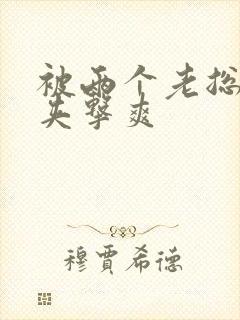 被两个老总
夹擊爽
穆賈希德